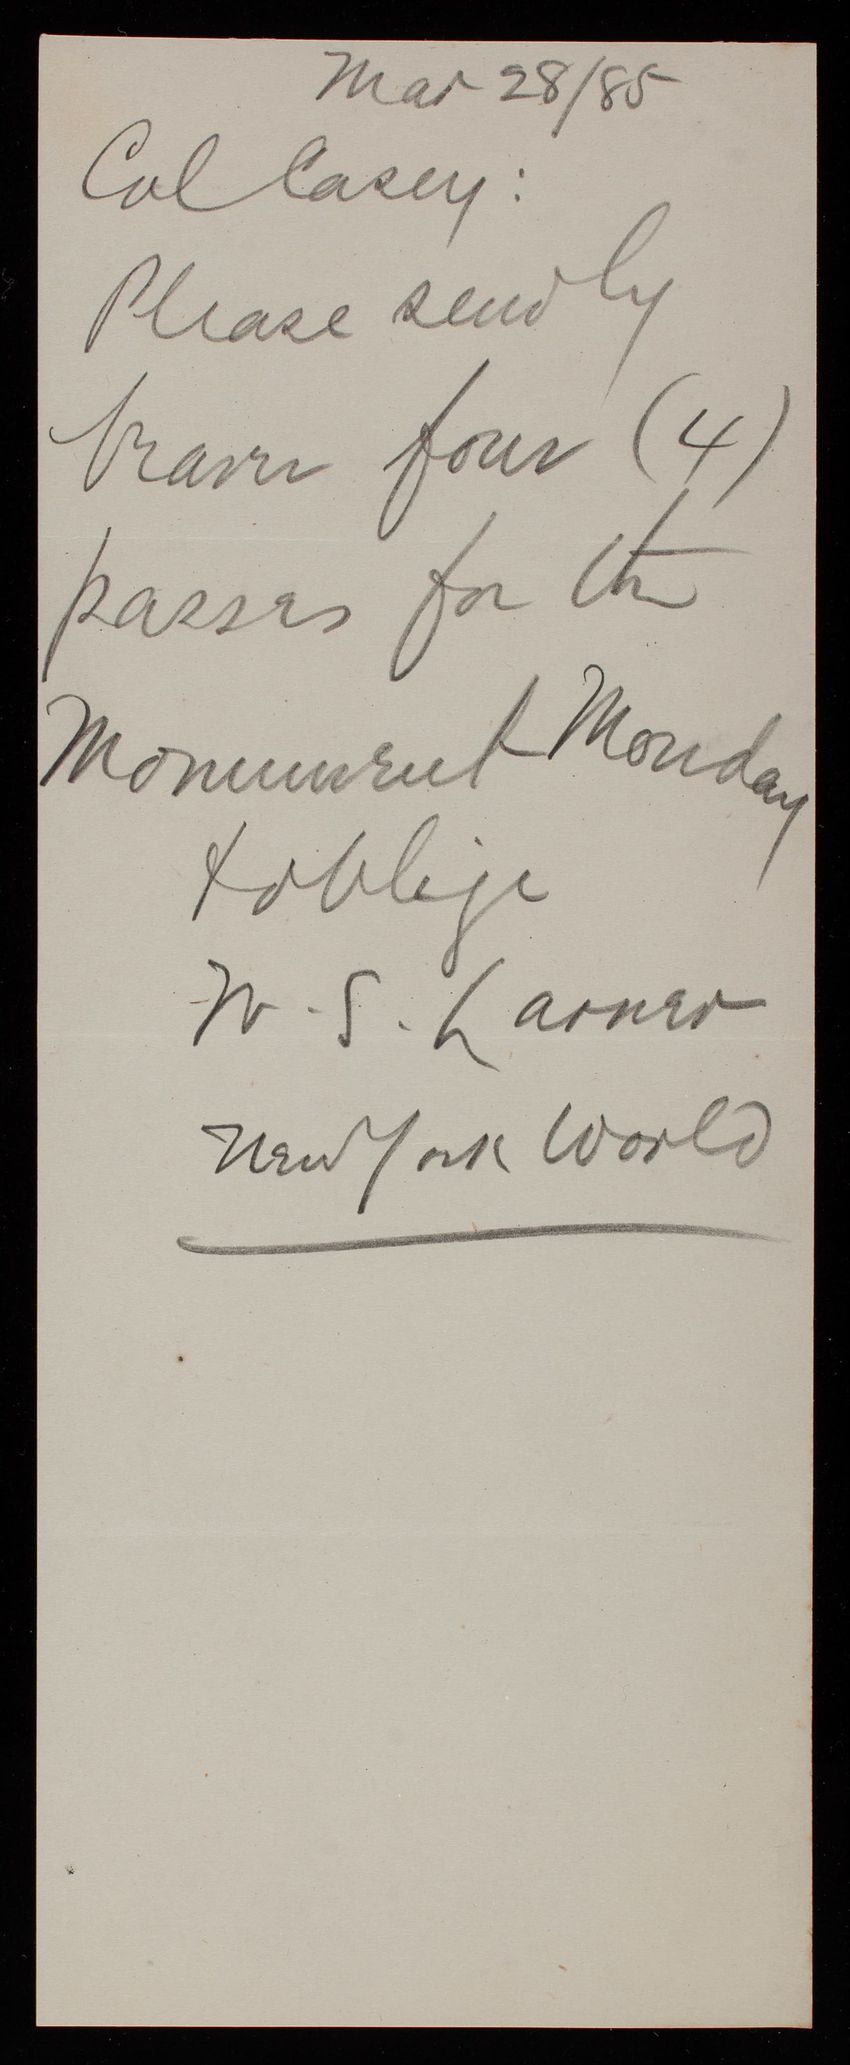 Mar 28/85
Col Casey:
Please send by
bearer four (4)
passes for the
Monument Monday
& oblige
W. S. Larner
New York World